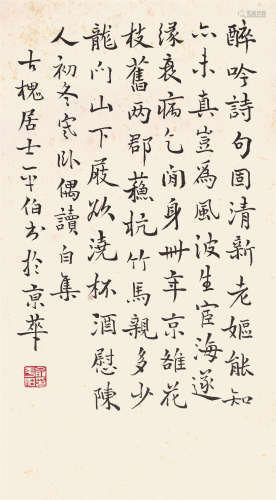 醉吟詩句固清新老嫗能知
亦未真豈為風波生宦海遂
緣衰病乞閒身卅年京雒花
枝舊两郡蘓杭竹馬親多少
龍门山下屐欲澆杯酒慰陳
人初冬寒卧偶讀白集
古槐居士平伯书於京華